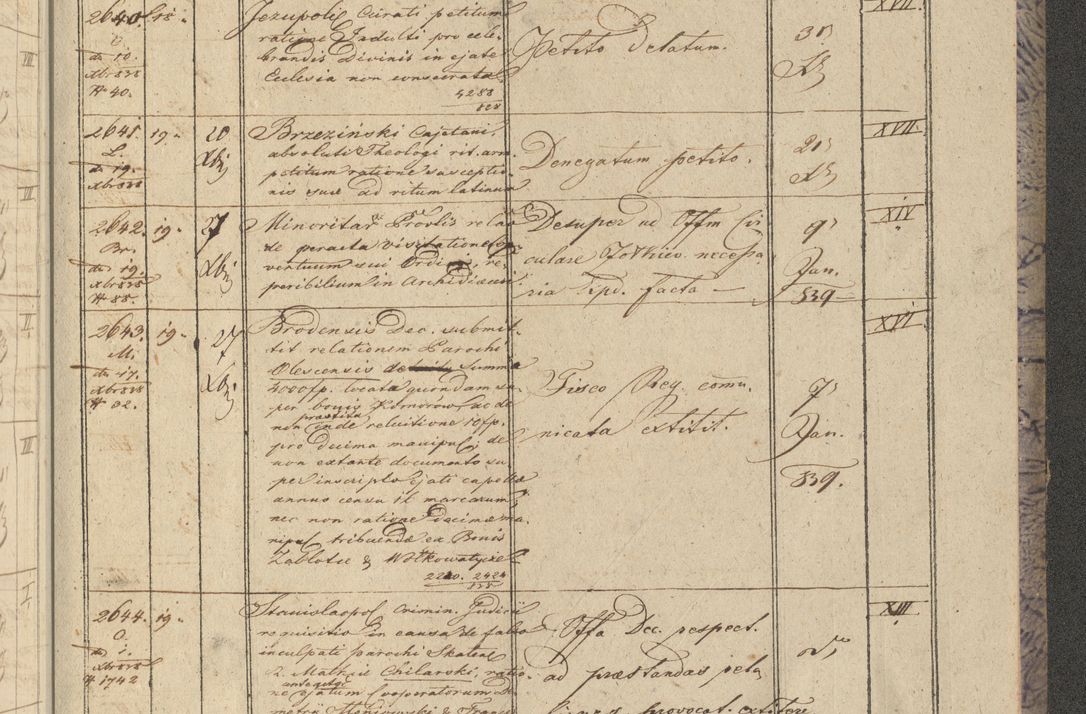 2640. 18.
Jezupolis Curati petitum
ratione Indulti pro cele-
brandis Divinis in ejate
Ecclesia non consecrata
4288
828
Petito delatum.
XVII.
de 10.
Xbr 838
# 40.
2641. 19. 20
Xbr
L.
de 19.
Xbr 838
Brzeziński Cajetani,
absoluti Theologi rit. arm.
petitum ratione susceptio-
nis suae ad ritum latinum
Denegatum petito.
XVII.
2642. 19. 27
Xbr
Br.
de 19.
Xbr 838
# 88.
Minoritar Provlis relao
de peracta visitatione
ventuum sui Ordinis, re-
peribilium in Archidiaecesi
Desuper ne Offm Cir-
culare Zolkiew. necessa-
ria dipd. facta —
9
Jan.
839
XIV
2643. 19. 27
Xbr
M.
de 17.
Xbr 838
# 02.
Brodensis Dec. submit-
tit relationem Parochi
Olescensis de Summa
4000 fp. locata quondam su-
per bonis Komorów, ac de
praestita
non inde reluitione 10 fp.
pro decima manipul; de
non extante documento su-
per inscripto ejati capellae
annuo censu 12 marcarum;
nec non ratione decimae ma-
nipul tribuendae ex Bonis
Zabłotce & Wołkowatyce
2220. 2424
Fisco Reg. comu-
nicata extitit.
7
Jan.
839.
XVI
2644. 19.
O.
de 1.
Xbr 838
# 1742
Stanislaopol. Crimin. Judicii
requisitio in causa de falso
inculpati parochi Skalae
R. Mathaei Chilarski, ratio-
ne ejatum Cooperatorum
Offa Dec. respect.
ad praestandas
provocat. extitere
XIII